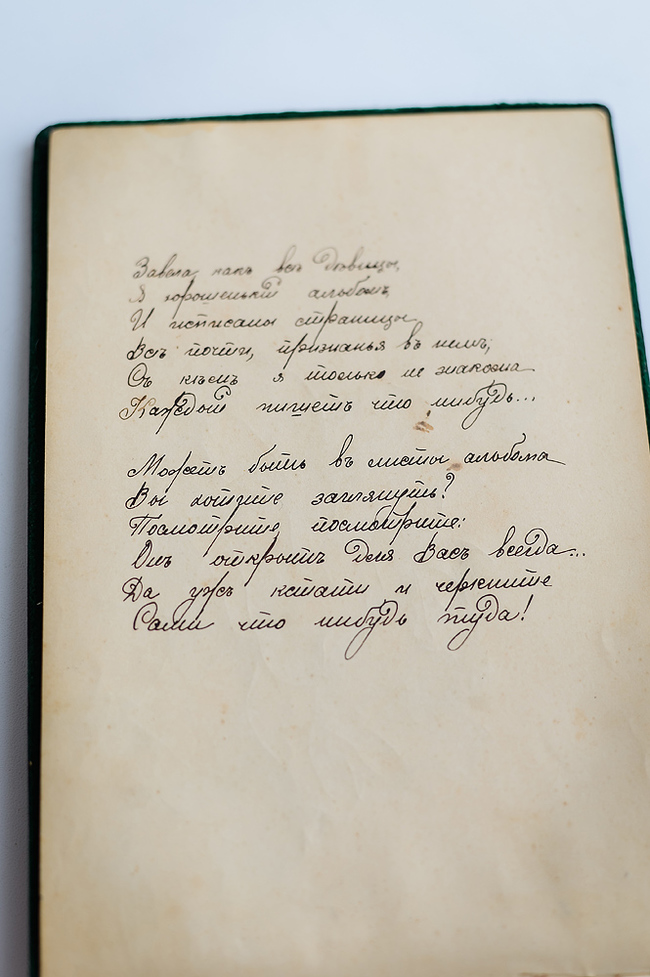 Завела какъ всѣ дѣвицы,
Я хорошенькій альбомъ,
И исписаны страницы
Всѣ почти, признанья въ немъ;
Съ кѣмъ я только не знакома
Каждый пишетъ что нибудь...
Можетъ быть въ листы альбома
Вы хотите заглянуть?
Посмотрите посмотрите:
Онъ открытъ для Васъ всегда...
Да ужъ кстати и черкните
Сами что нибудь туда!